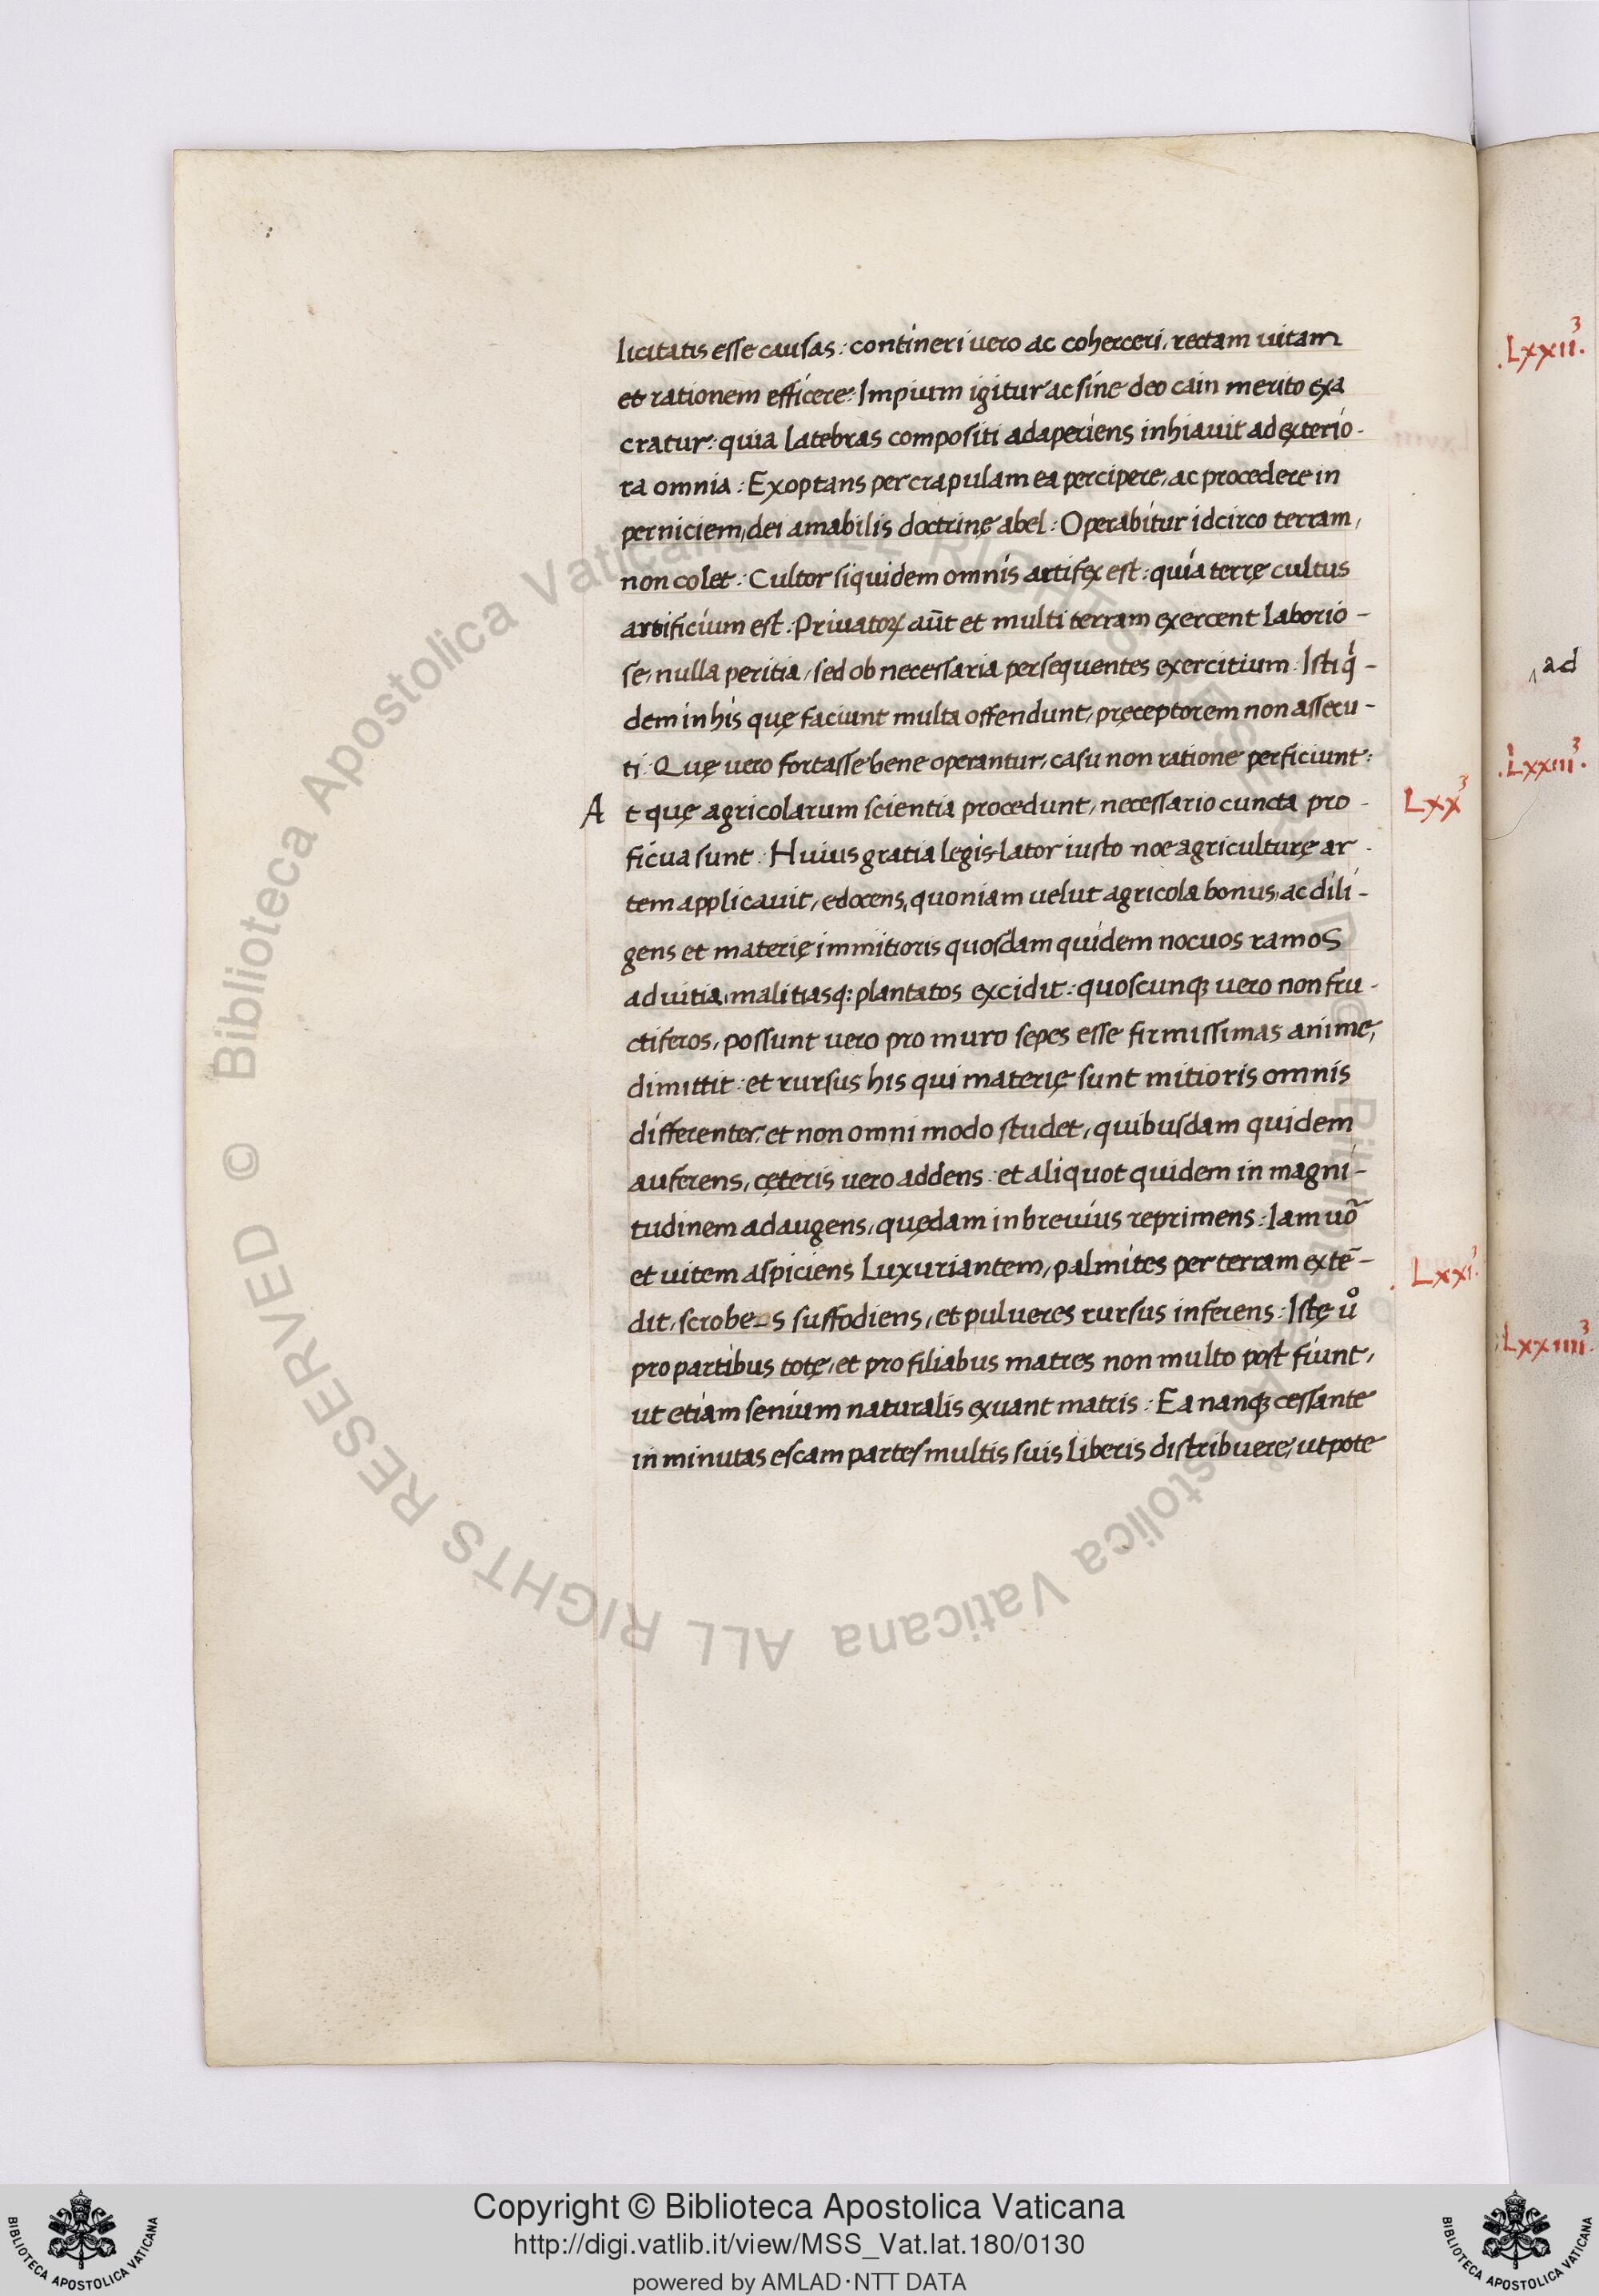 licitatis esse causas : contineri uero ac coherceri, rectam uitam
et rationem efficere : Impium igitur ac sine deo cain merito exa
cratur : quia latebras compositi adaperiens inhiauit ad exterio-
ra omnia : Exoptans per crapulam ea percipere, ac procedere in
perniciem, dei amabilis doctrinę abel : Operabitur idcirco terram,
non colet : Cultor siquidem omnis artifex est : quia terrę cultus
artificium est : Priuatoꝝ aūt et multi terram exercent laborio-
se, nulla peritia, sed ob necessaria persequentes exercitium : Isti q̇-
dem in his quę faciunt multa offendunt, pręceptorem non assecu-
ti : Quę uero fortasse bene operantur, casu non ratione perficiunt :
At quę agricolarum scientia procedunt, necessario cuncta pro-
Lxx³
ficua sunt : Huius gratia legis-lator iusto noe agriculturę ar-
tem applicauit, edocens, quoniam uelut agricola bonus, ac dili-
gens et materię immitioris quosdam quidem nocuos ramos
ad uitia, malitiasq: plantatos excidit : quoscunqꝫ uero non fru-
ctiferos, possunt uero pro muro sepes esse firmissimas animę,
dimittit : et rursus his qui materię sunt mitioris omnis
differenter, et non omni modo studet, quibusdam quidem
auferens, cęteris uero addens : et aliquot quidem in magni-
tudinem adaugens, quędam in breuius reprimens : Iam uõ
et uitem aspiciens luxuriantem, palmites per terram extē-
. Lxxi³.
dit, scrobe_s suffodiens, et pulueres rursus inferens : Istę uͦ
pro partibus totę, et pro filiabus matres non multo post fiunt,
ut etiam senium naturalis exuant matris : Ea nanqꝫ cessante
in minutas escam partes multis suis liberis distribuere, utpote
.Lxxii³.
ad
.Lxxiii³.
.Lxxiiii³.
© Biblioteca Apostolica Vaticana ALL RIGHTS RESERVED
© Biblioteca Apostolica Vaticana ALL RIGHTS RESERVED
BIBLIOTECA APOSTOLICA VATICANA
Copyright © Biblioteca Apostolica Vaticana
http://digi.vatlib.it/view/MSS_Vat.lat.180/0130
powered by AMLAD·NTT DATA
BIBLIOTECA APOSTOLICA VATICANA